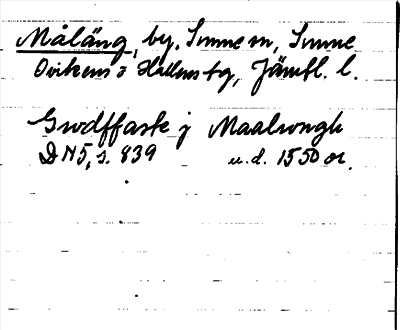 Måläng, by, Sunne sn, Sunne
Ovikens o Hallens tg, Jämtl. l.
Gudffaste j Maalongh
DN5, s. 839 u.d. 1550 or.